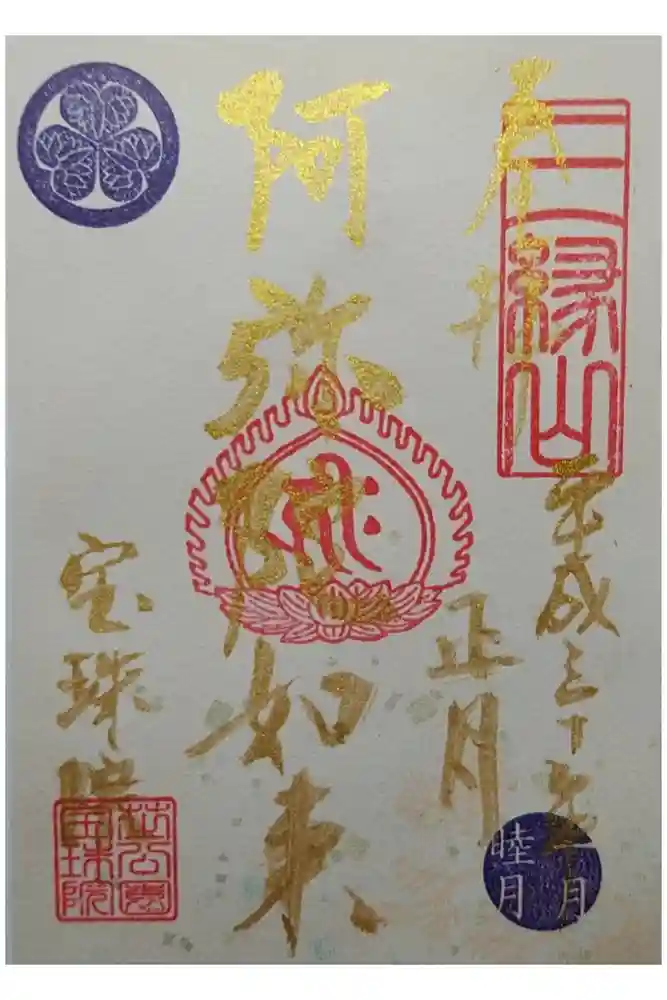 奉拝
三縁山
平成三十一年
正月
一月
睦月
阿弥陀如来
宝珠院
芝公園
宝珠院